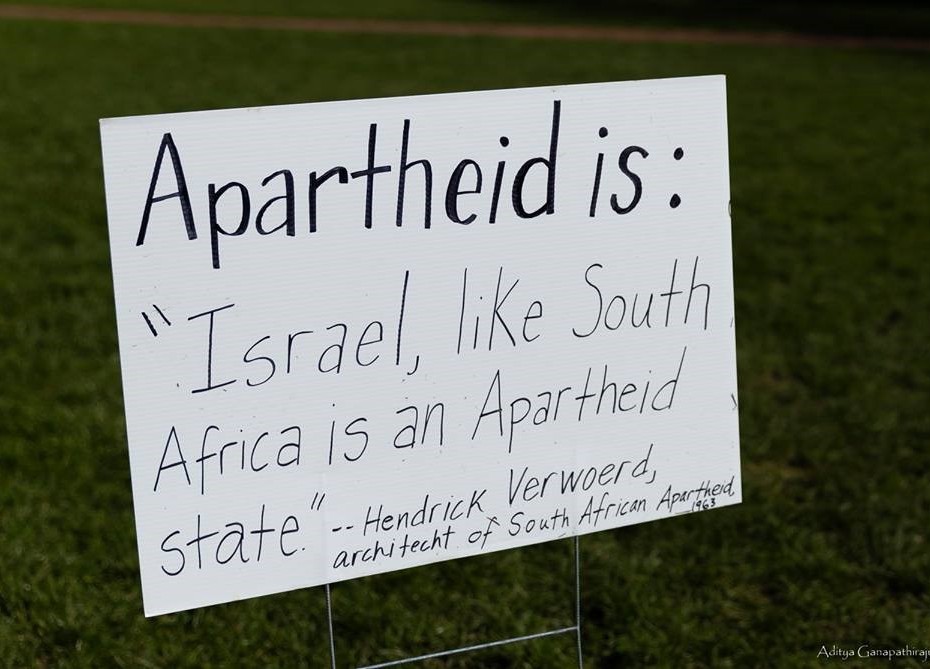 Apartheid is:
"Israel, like South
Africa is an Apartheid
state." -- Hendrick Verwoerd,
architecht of South African Apartheid
1963
Aditya Ganapathiraju